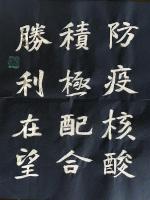 防疫核酸
積極配合
勝利在望